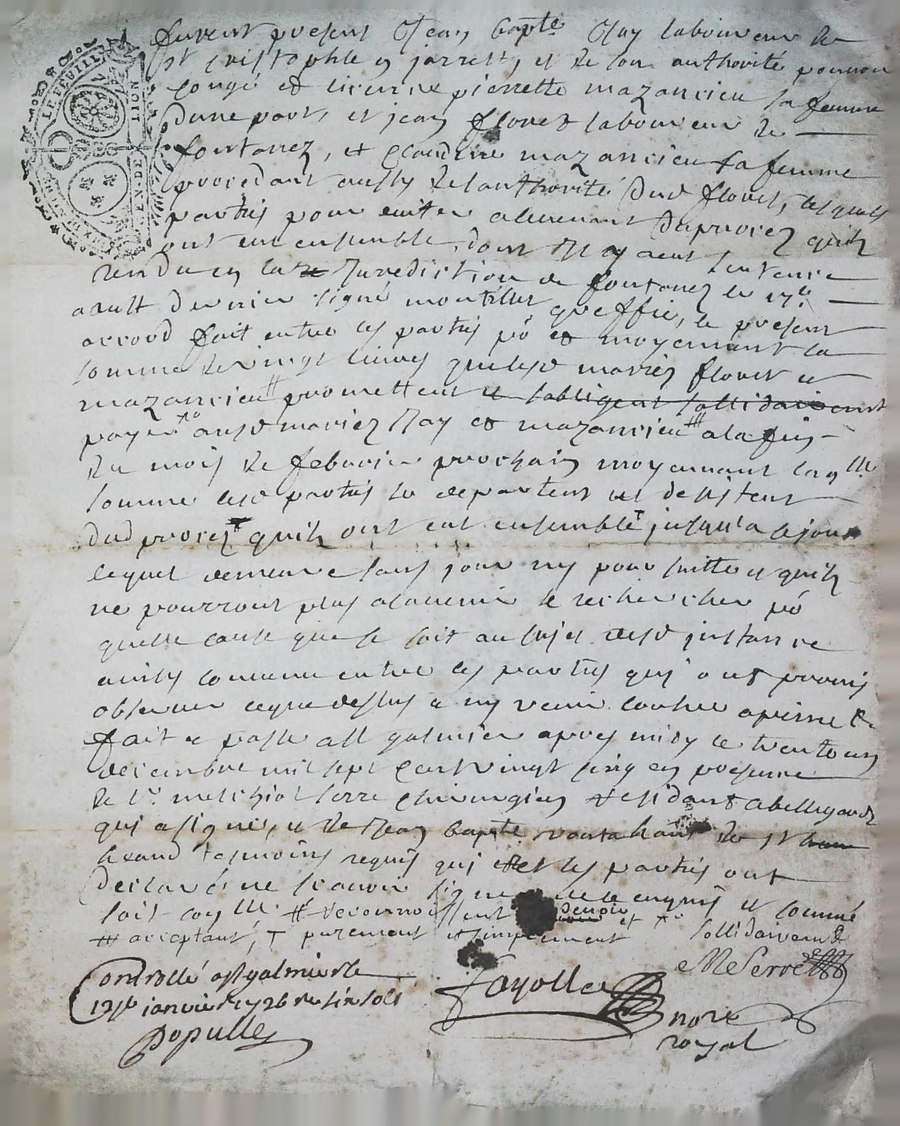 furent present Jean bapte May laboureur de
st cristophle en jarrest, et de son authorité pouvoir
congé et licence pierrette mazancieu sa femme
dune part, et jean flouret laboureur de
fontanez, et claudine mazancieu sa femme
procedant aussy de lauthorité dud flouret, lesquels
partis pour eviter alevenant du procez quils
ont eu ensemble, dont May a eut sentence
rendu en la jurediction de fontanez le 17e
aoust dernier signé greffie, le present
accord fait entre les partis po et moyennant la
somme de vingt livres quelesd mariez flouret et
mazancieu promettent et sobligent sollidairement
payer ausd mariez May et mazancieu a la fin
du mois de febvrier prochain moyennant laqlle
somme lesd partis se departent et desistent
dud procez quils ont eut ensemble jusqu'a ce jour
lequel demeure sans poursuitte et quils
ne pourront plus alavenir se rechercher po
quelle cause que ce soit au sujet desd instance
ainsy convenu entre les partis qui ont promis
observer ceque dessus a ny venir contre apeine &
fait & passé a St galmier apres midy le trente un
decembre mil sept cent vingt cinq en presence
de sr melchiol serre chirurgien residant abellegarde
qui a signé, et de Jean bapte de st
heand tesmoins requis qui et les partis ont
declaré ne scavoir signer de ce enquis et sommé
soit coylle # reconnoissent devoir et sollidairement
acceptant, T purement et simplement
MeSerre
Controllé a St galmier le
12e janvier 1726 reçu six sols
Fayolle
nore
royal
Populle
LE FEUILLE
LION
EN DE